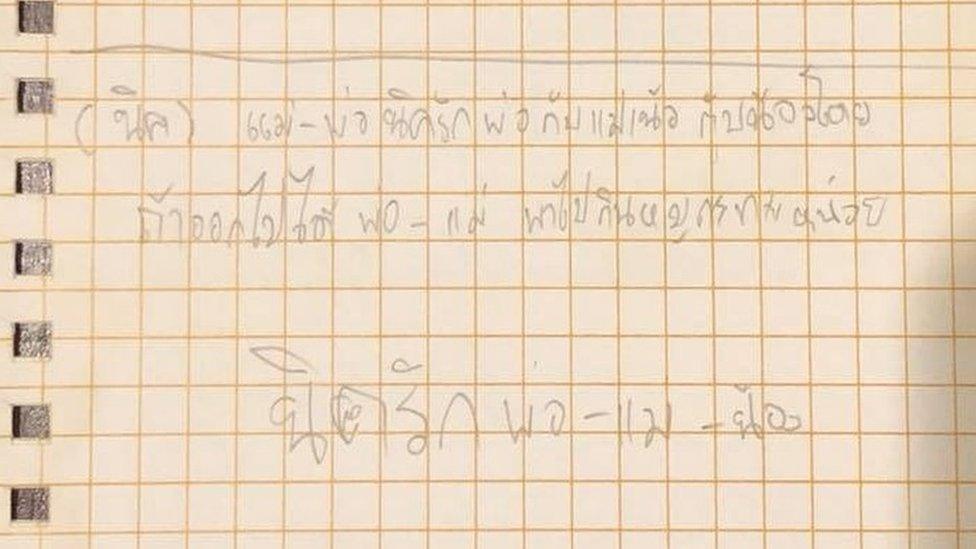 (นิค) แม่-พ่อ นิครักพ่อกับแม่แน้ว กับน้องโดย
ถ้าออกไปได้ พ่อ-แม่ พาไปกินหมูกระทะหน่อย
นิครัก พ่อ-แม่-น้อง